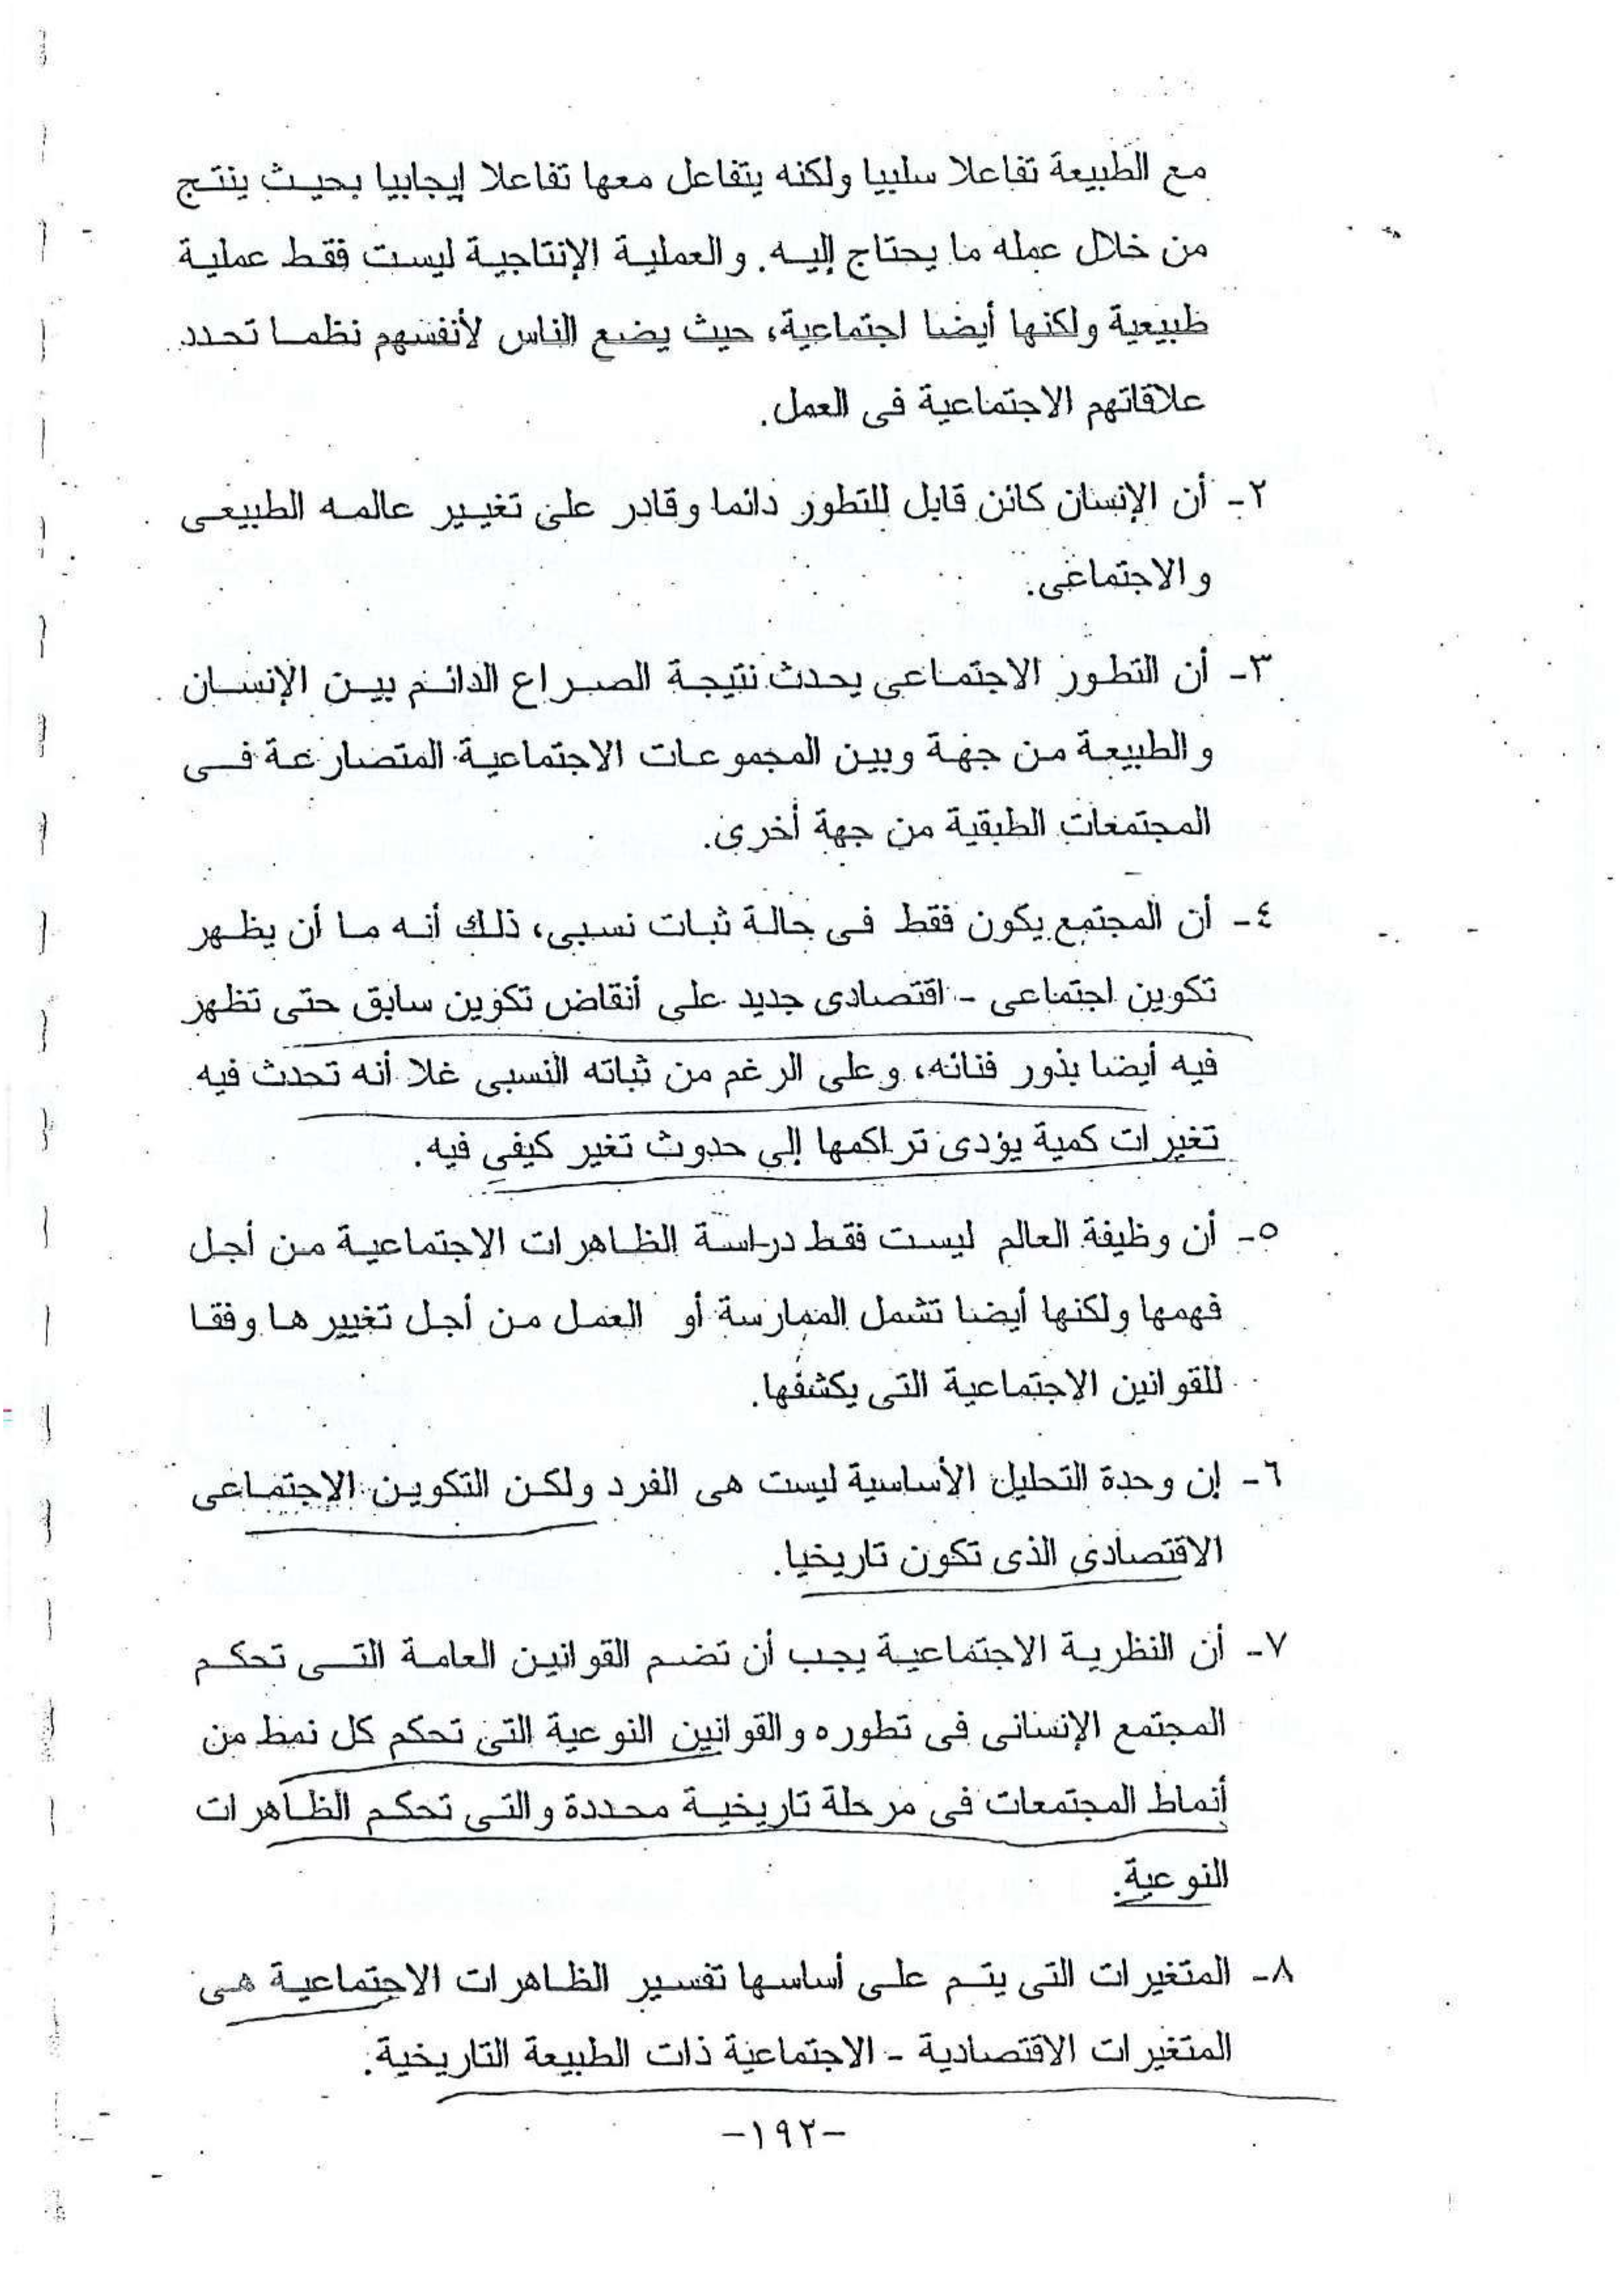 مع الطبيعة تفاعلا سلبيا ولكنه يتفاعل معها تفاعلا إيجابيا بحيث ينتج
من خلال عمله ما يحتاج إليه. والعملية الإنتاجية ليست فقط عملية
طبيعية ولكنها أيضا اجتماعية، حيث يضع الناس لأنفسهم نظما تحدد
علاقاتهم الاجتماعية فى العمل.
٢- أن الإنسان كائن قابل للتطور دائما وقادر على تغيير عالمه الطبيعى
والاجتماعى.
٣- أن التطور الاجتماعى يحدث نتيجة الصراع الدائم بين الإنسان
والطبيعة من جهة وبين المجموعات الاجتماعية المتصارعة فى
المجتمعات الطبقية من جهة أخرى.
٤- أن المجتمع يكون فقط فى حالة ثبات نسبى، ذلك أنه ما أن يظهر
تكوين اجتماعى - اقتصادى جديد على أنقاض تكوين سابق حتى تظهر
فيه أيضا بذور فنائه، وعلى الرغم من ثباته النسبى غلا أنه تحدث فيه
تغيرات كمية يؤدى تراكمها إلى حدوث تغير كيفى فيه.
٥- أن وظيفة العالم ليست فقط دراسة الظاهرات الاجتماعية من أجل
فهمها ولكنها أيضا تشمل الممارسة أو العمل من أجل تغييرها وفقا
للقوانين الاجتماعية التى يكشفها.
٦- إن وحدة التحليل الأساسية ليست هى الفرد ولكن التكوين الإجتماعى
الاقتصادى الذى تكون تاريخيا.
٧- أن النظرية الاجتماعية يجب أن تضم القوانين العامة التى تحكم
المجتمع الإنسانى فى تطوره والقوانين النوعية التى تحكم كل نمط من
أنماط المجتمعات فى مرحلة تاريخية محددة والتى تحكم الظاهرات
النوعية.
٨- المتغيرات التى يتم على أساسها تفسير الظاهرات الاجتماعية هى
المتغيرات الاقتصادية - الاجتماعية ذات الطبيعة التاريخية.
-١٩٢-